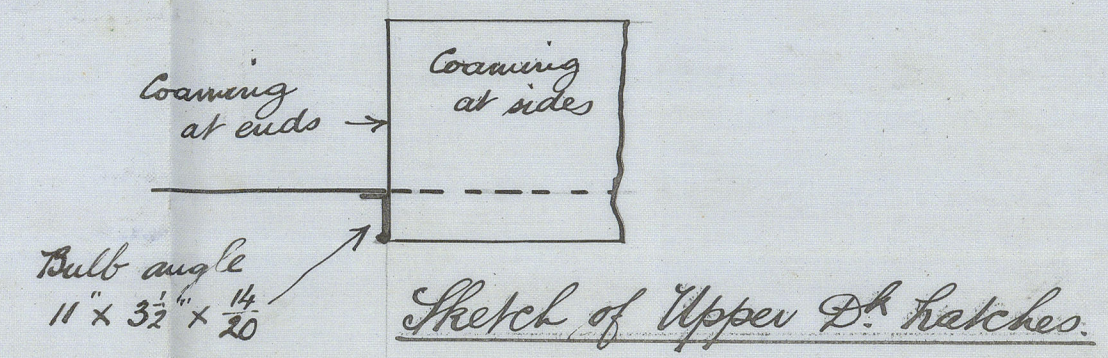 Coaming
at ends
Coaming
at sides
Bulb angle
11" x 3½" x 14/20
Sketch of Upper Dk. hatches.